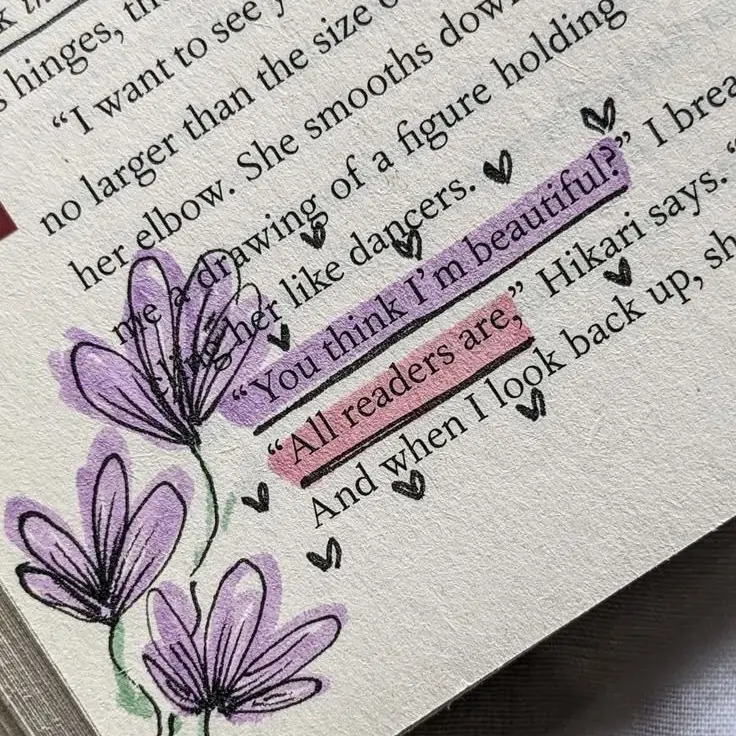 hinges,
“I want to see
no larger than the size
her elbow. She smooths
me a drawing of a figure holding
cling her like dancers.
“You think I’m beautiful?” I
“All readers are,” Hikari says. “
And when I look back up,